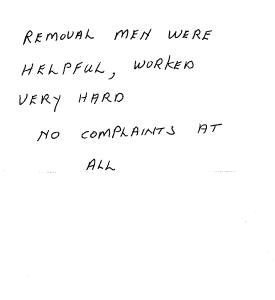 REMOVAL MEN WERE
HELPFUL, WORKED
VERY HARD
NO COMPLAINTS AT
ALL